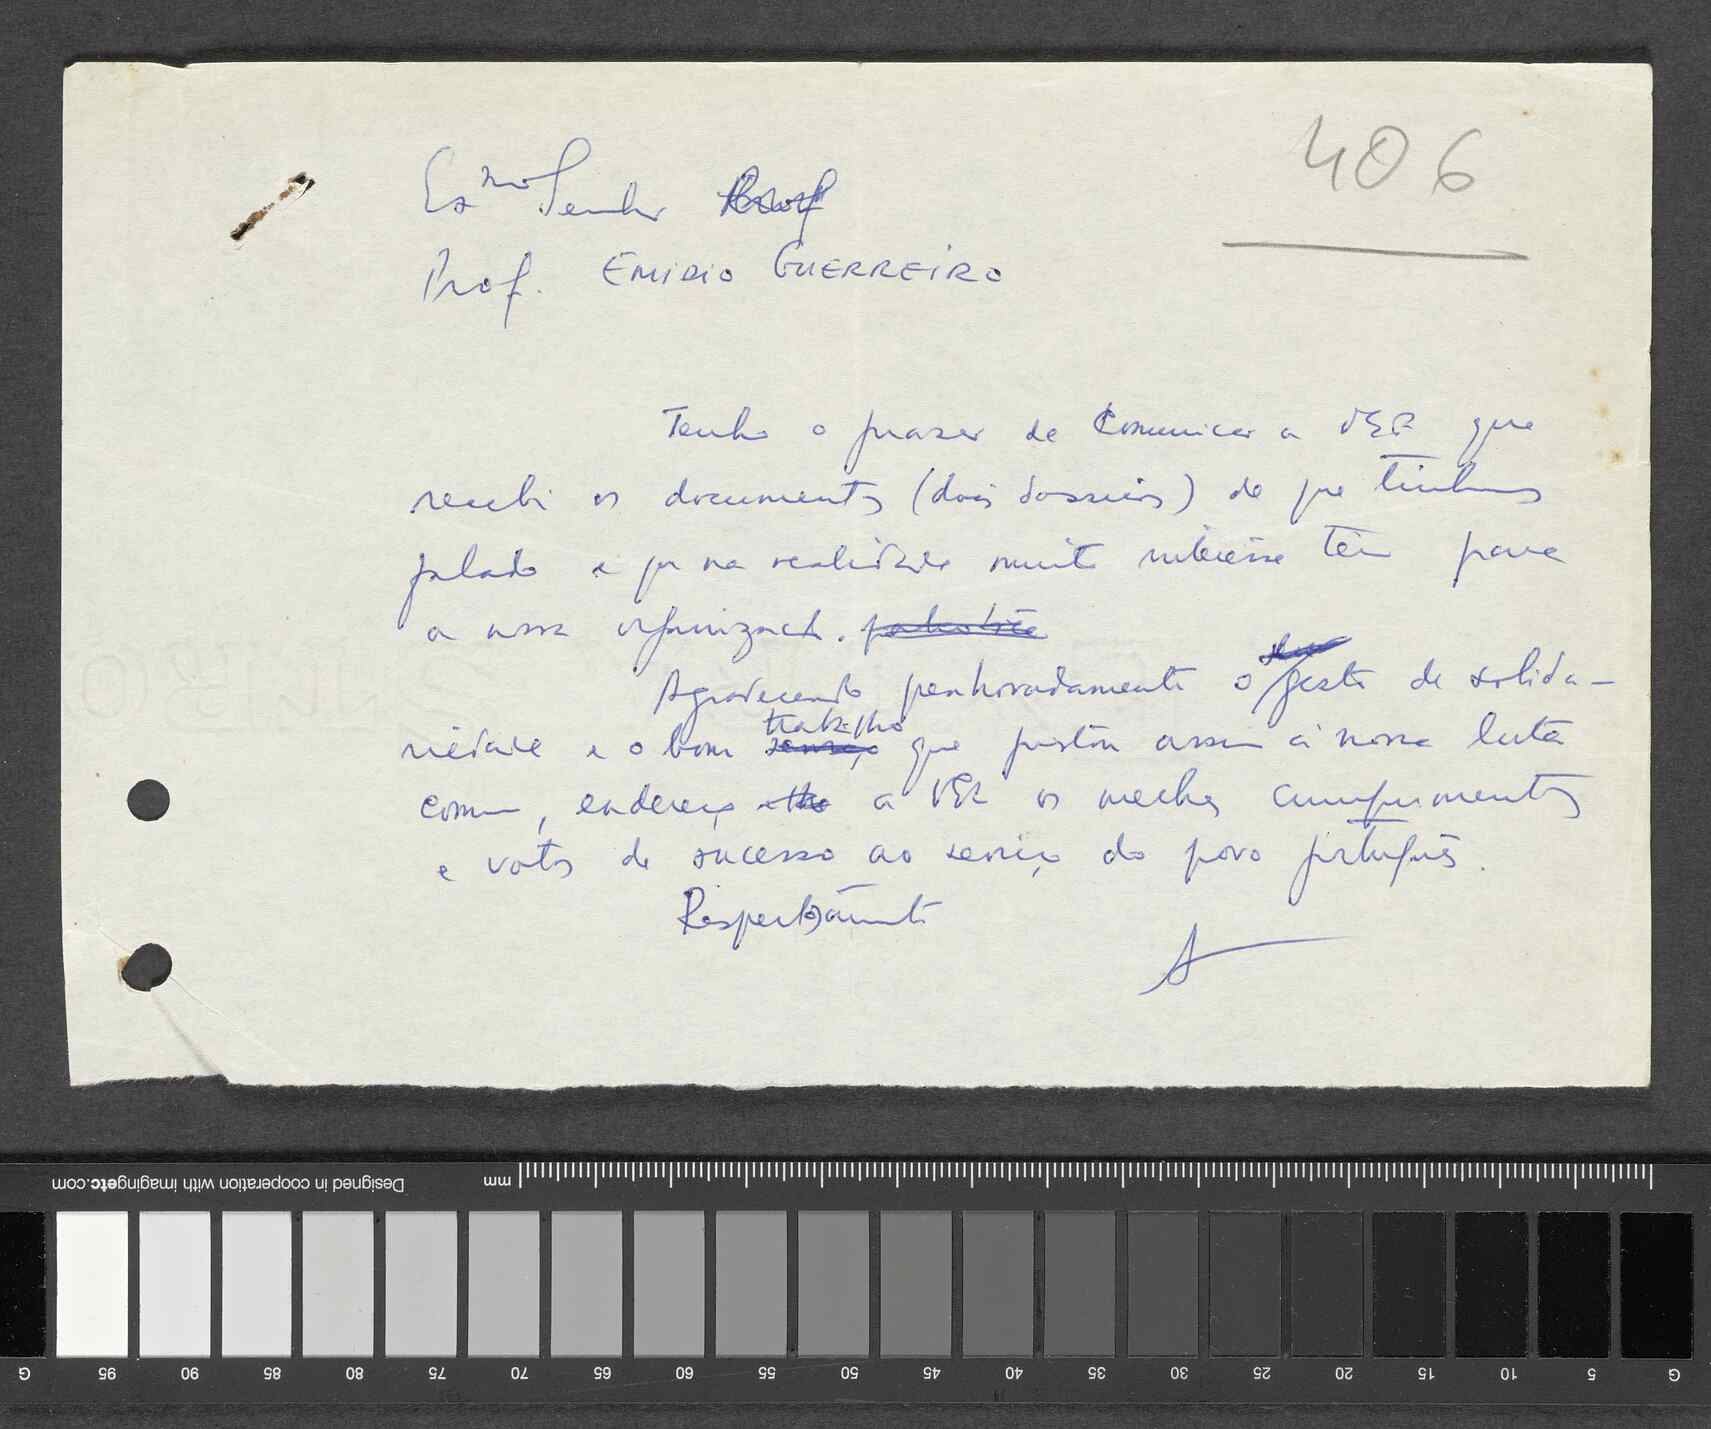 406
Exmo Senhor Prof
Prof. EMIDIO GUERREIRO
Tenho o prazer de Comunicar a VEXª que
recebi os documentos (dois dossiers) de que tinhamos
falado e que na realidade muito interesse têm para
a nossa organização. patriótica
Agradecendo penhoradamente o seu gesto de solida-
riedade e o bom serviço trabalho que prestou assim à nossa luta
comum, endereço a VEXª os meus cumprimentos
e votos de sucesso ao serviço do povo português.
Respeitosamente
Designed in cooperation with imagingetc.com
mm
G 95 90 85 80 75 70 65 60 55 50 45 40 35 30 25 20 15 10 5 G